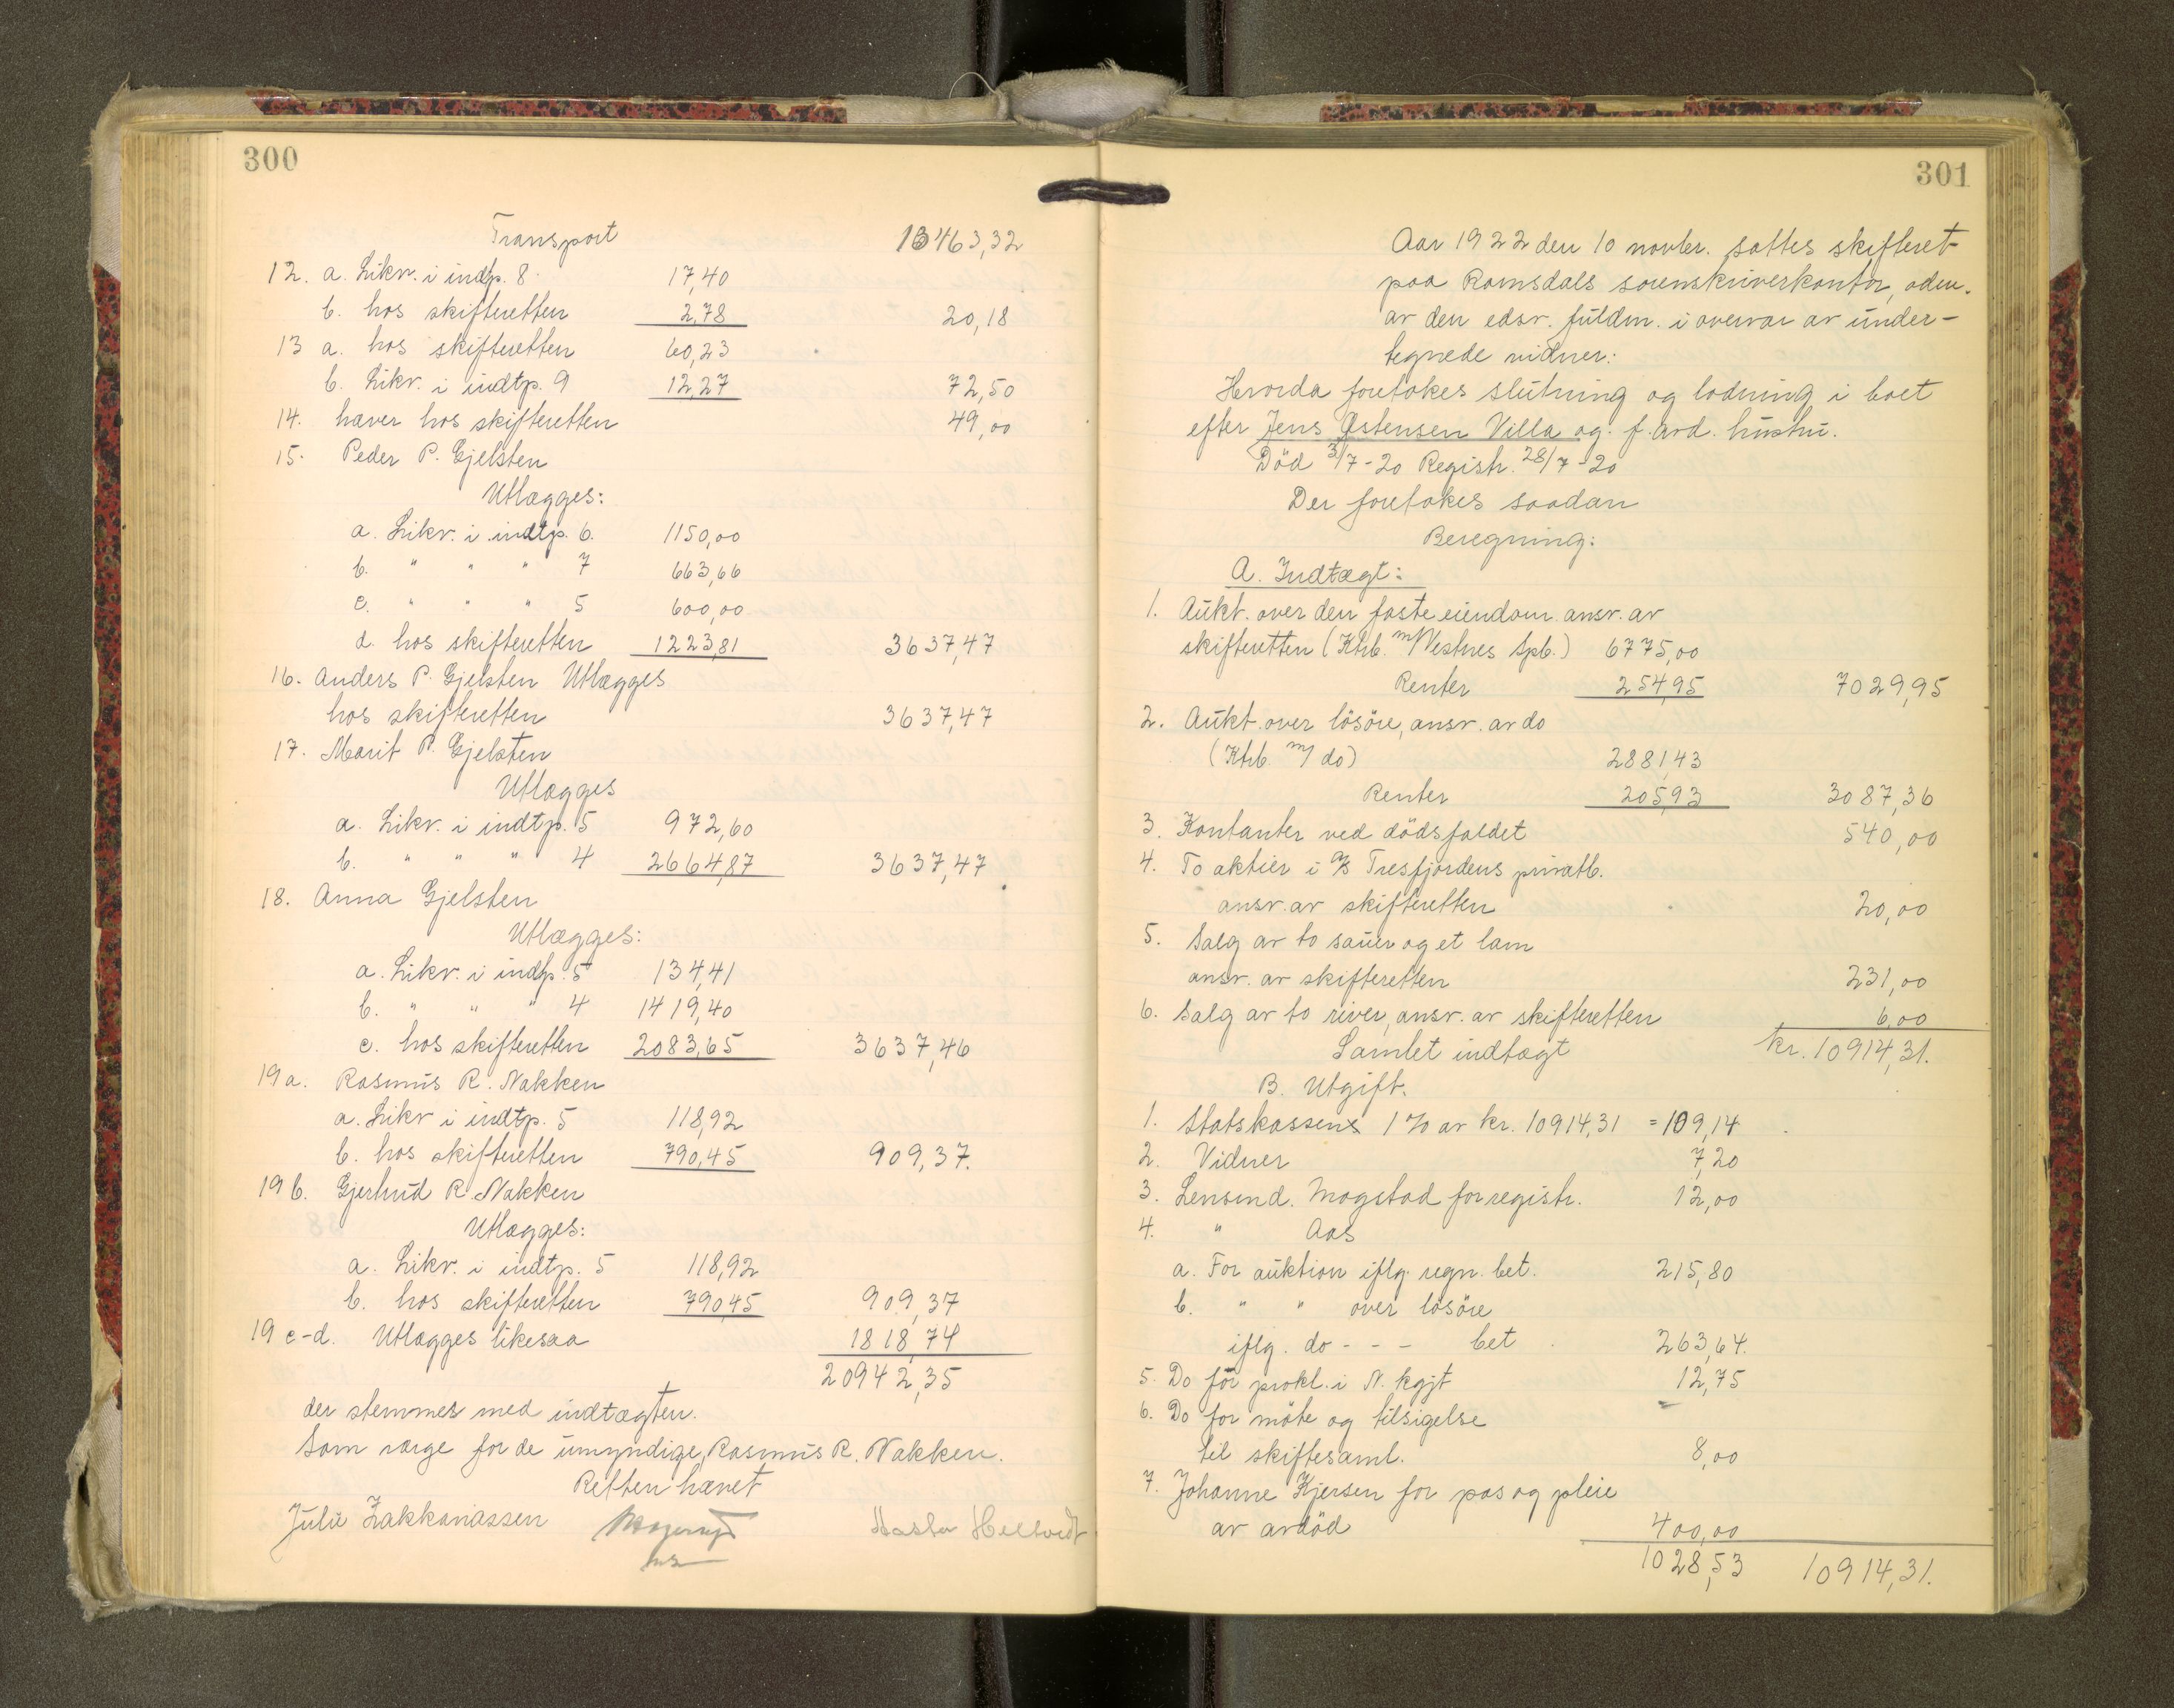 300
Transport 13463,32
12. a. Likv. i indtp. 8 17,40
b. hos skifteretten 2,78 20,18
13 a. hos skifteretten 60,23
b. Likv. i indtp. 9 12,27 72,50
14. hæver hos skifteretten 49,00
15. Peder P. Gjelsten
Utlægges:
a. Likv. i indtp. 6. 1150,00
b. " " " 7 663,66
c. " " " 5 600,00
d. hos skifteretten 1223,81 3637,47
16. Anders P. Gjelsten Utlægges
hos skifteretten 3637,47
17. Marit P. Gjelsten
Utlægges
a. Likv. i indtp. 5 972,60
b. " " " 4 2664,87 3637,47
18. Anna Gjelsten
Utlægges:
a. Likv. i indtp. 5 134,41
b. " " " 4 1419,40
c. hos skifteretten 2083,65 3637,46
19a. Rasmus R. Nakken
a. Likv i indtp. 5 118,92
b. hos skifteretten 790,45 909,37.
19 b. Gjertrud R. Nakken
Utlægges:
a. Likv. i indtp. 5 118,92
b. hos skifteretten 790,45 909,37
19 c-d. Utlægges likesaa 1818,74
20942,35
der stemmer med indtægten.
Som værge for de umyndige, Rasmus R. Nakken.
Retten hævet
Julie Zakkariassen

301
Aar 1922 den 10 novbr. sattes skifteret
paa Romsdals sorenskriverkontor, adm.
av den edsv. fuldm. i overvær av under-
tegnede vidner:
Hvorda foretokes slutning og lodning i boet
efter Jens Østensen Villa og f. avd. hustru.
Död 3/7-20 Registr. 28/7-20
Der foretokes saadan
Beregning:
A. Indtægt:
1. Aukt. over den faste eiendom ansv. av
skifteretten (Ktrb. m/ Vestnes Spb.) 6775,00
Renter 254,95 7029,95
2. Aukt. over lösöre, ansv. av do
(Ktrb. m/ do) 2881,43
Renter 205,93 3087,36
3. Kontanter ved dödsfaldet 540,00
4. To aktier i A/S Tresfjordens privatb.
ansv. av skifteretten 20,00
5. Salg av to sauer og et lam
ansv. av skifteretten 231,00
6. Salg av to river, ansv. av skifteretten 6,00
Samlet indtægt kr. 10914,31.
B. Utgift.
1. Statskassen 1 % av kr. 10914,31 = 109,14
2. Vidner 7,20
3. Lensmd. Mogstad for registr. 12,00
4. " Aas
a. For auktion iflg. regn. bet. 215,80
b. " " over lösöre
iflg. do - - - bet 263,64.
5. Do for prokl. i N. kgjt 12,75
6. Do for möte og tilsigelse
til skiftesaml. 8,00
7. Johanne Kjersen for pas og pleie
av avdöd 400,00
1028,53 10914,31.